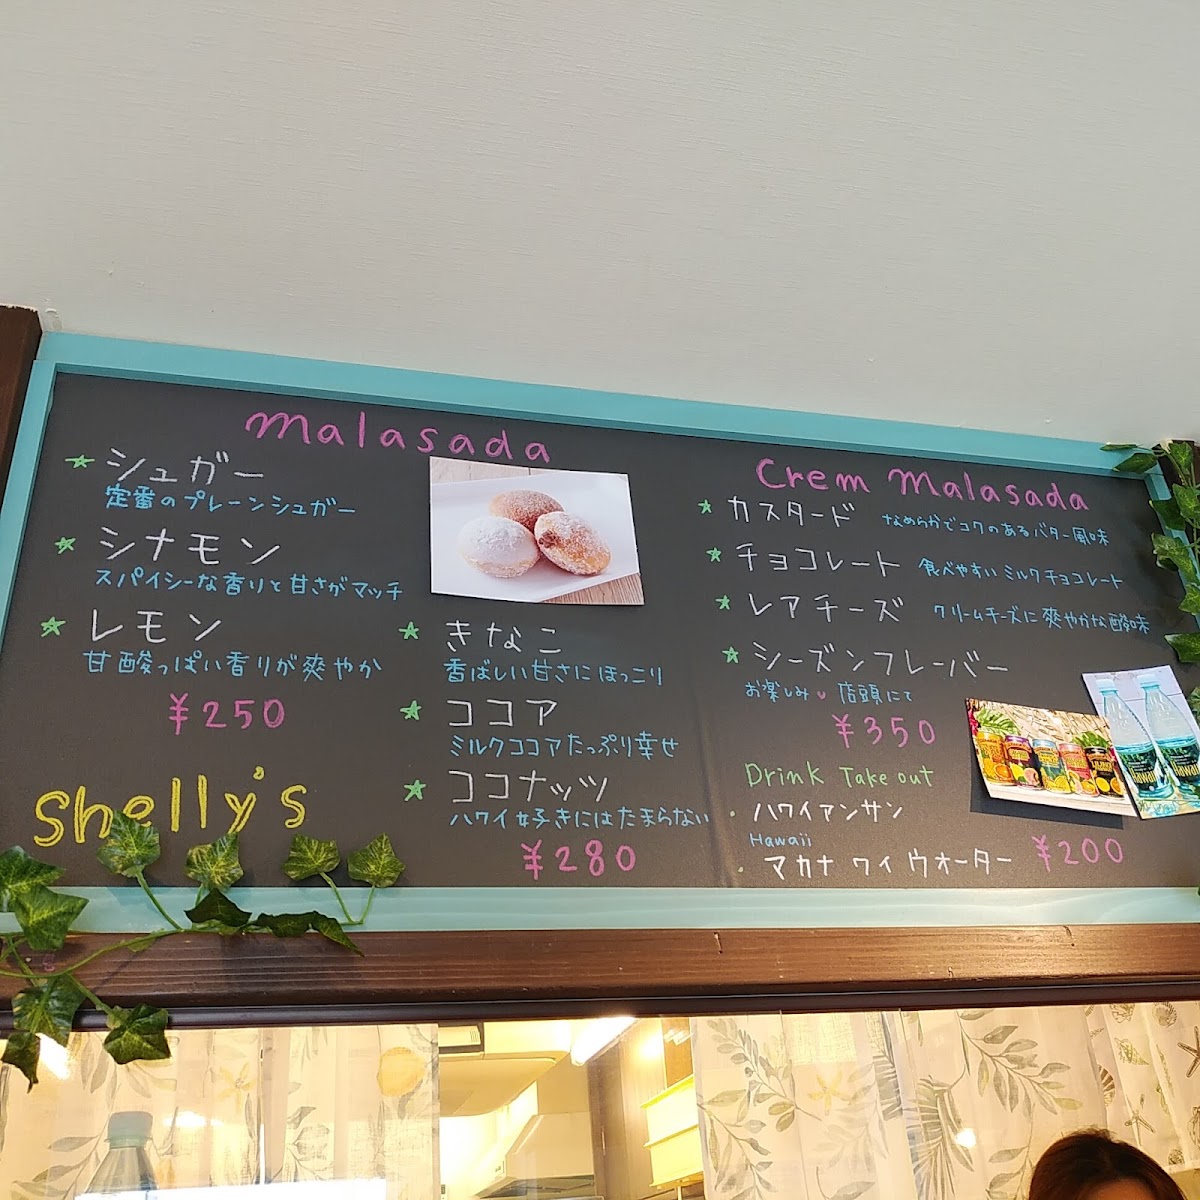 malasada
シュガー
定番のプレーンシュガー
シナモン
スパイシーな香りと甘さがマッチ
レモン
甘酸っぱい香りが爽やか
¥250
Shelly's
きなこ
香ばしい甘さにほっこり
ココア
ミルクココアたっぷり幸せ
ココナッツ
ハワイ好きにはたまらない
¥280
Crem malasada
カスタード なめらかでコクのあるバター風味
チョコレート 食べやすいミルクチョコレート
レアチーズ クリームチーズに爽やかな酸味
シーズンフレーバー
お楽しみ 店頭にて
¥350
Drink Take out
・ハワイアンサン
Hawaii
・マカナ ワイ ウオーター ¥200